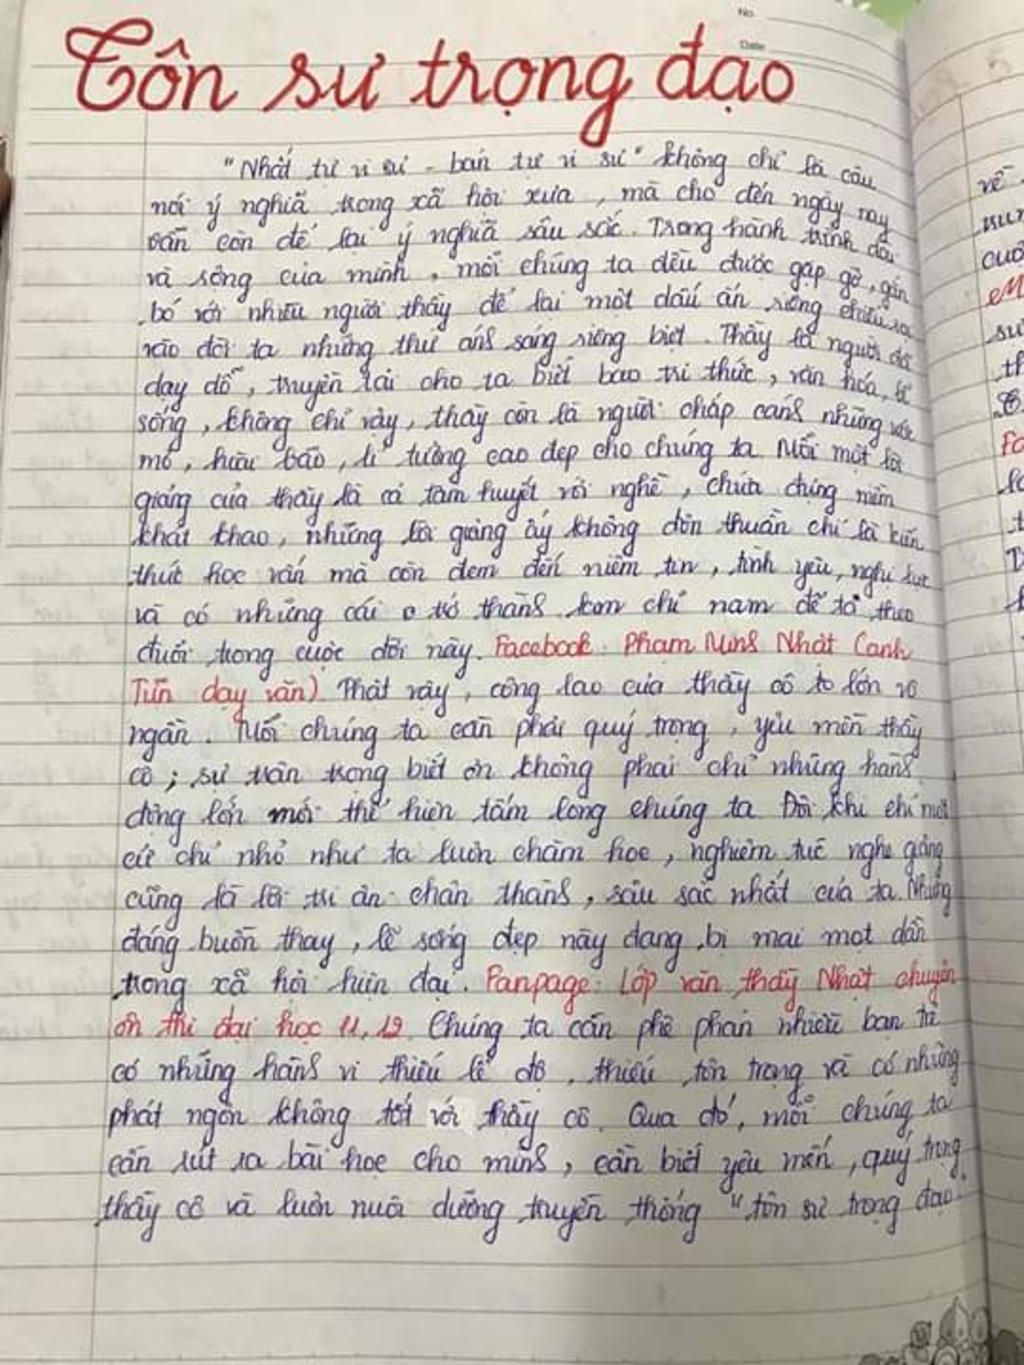 No.
Date
Tôn sư trọng đạo
"Nhất tự vi sư - bán tự vi sư" không chỉ là câu
nói ý nghĩa trong xã hội xưa, mà cho đến ngày nay
vẫn còn để lại ý nghĩa sâu sắc. Trong hành trình dài
và sống của mình, mỗi chúng ta đều được gặp gỡ, gắn
bó với nhiều người thầy để lại một dấu ấn riêng chiếu ra
vào đời ta những thứ ánh sáng riêng biệt. Thầy là người đã
dạy dỗ, truyền tải cho ta biết bao tri thức, văn hóa, lẽ
sống, không chỉ vậy, thầy còn là người chắp cánh những ước
mơ, hoài bão, lí tưởng cao đẹp cho chúng ta. Mỗi một lời
giảng của thầy là cả tâm huyết với nghề, chứa đựng niềm
khát khao, những lời giảng ấy không đơn thuần chỉ là kiến
thức học vấn mà còn đem đến niềm tin, tình yêu, nghị lực
và có những cái trở thành kim chỉ nam để ta theo
đuổi trong cuộc đời này. Facebook: Phạm Minh Nhật (anh
Tiến dạy văn) Thật vậy, công lao của thầy cô to lớn vô
ngần. Mỗi chúng ta cần phải quý trọng, yêu mến thầy
cô; sự trân trọng biết ơn không phải chỉ những hành
động lớn mới thể hiện tấm lòng chúng ta. Đôi khi chỉ một
cử chỉ nhỏ như ta luôn chăm học, nghiêm túc nghe giảng
cũng là lời tri ân chân thành, sâu sắc nhất của ta. Nhưng
đáng buồn thay, lẽ sống đẹp này đang bị mai một dần
trong xã hội hiện đại. Fanpage: Lớp văn thầy Nhật chuyên
ôn thi đại học 11, 12. Chúng ta cần phê phán nhiều bạn trẻ
có những hành vi thiếu lễ độ, thiếu tôn trọng và có những
phát ngôn không tốt với thầy cô. Qua đó, mỗi chúng ta
cần rút ra bài học cho mình, cần biết yêu mến, quý trọng
thầy cô và luôn nuôi dưỡng truyền thống "tôn sư trọng đạo".